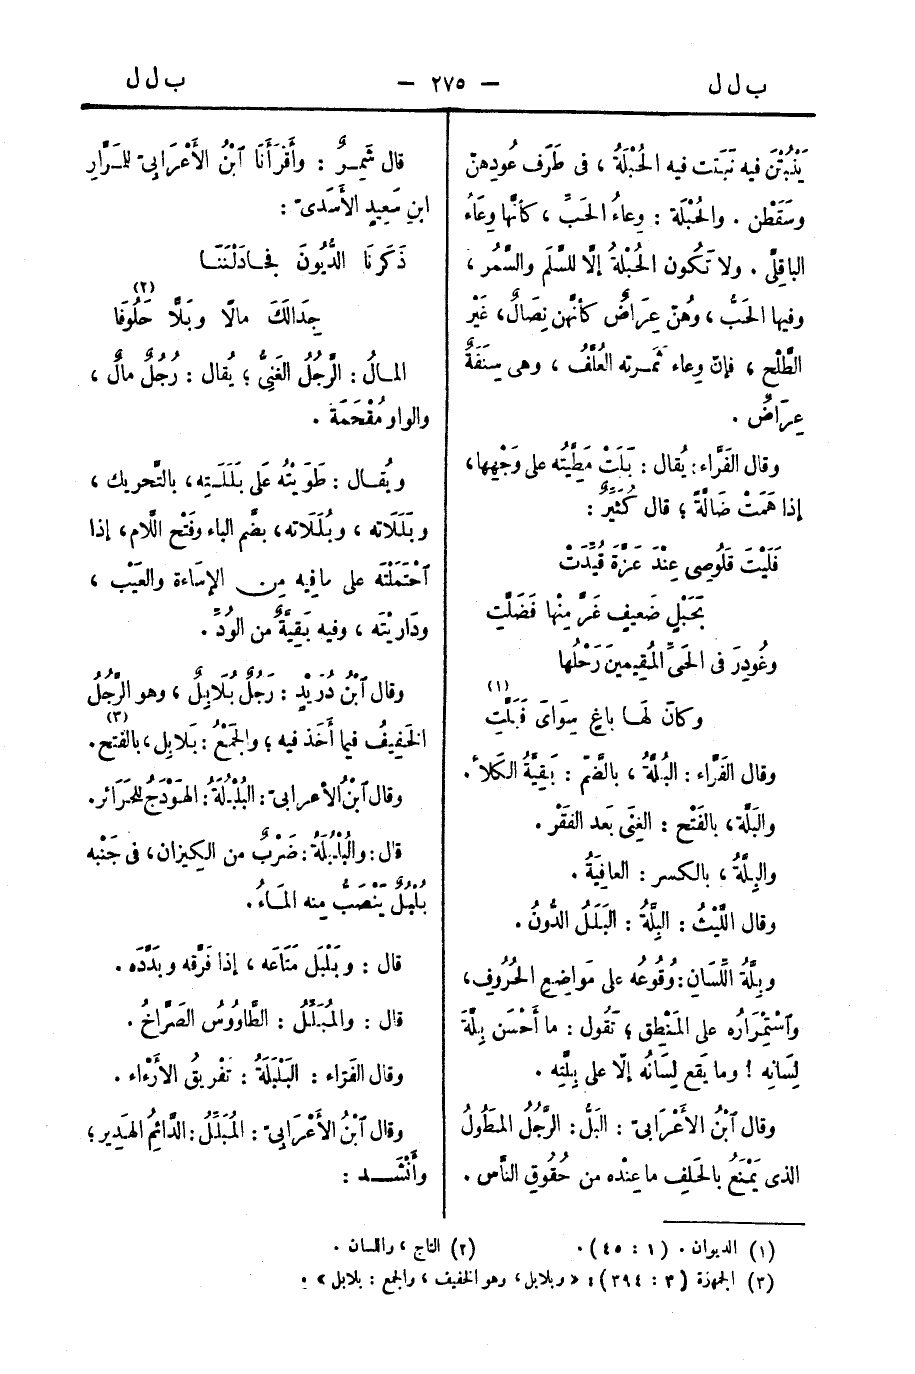 ب ل ل — ٢٧٥ — ب ل ل
يَذْبُتْنَ فيه نَبَتت فيه الحُبْلَةُ ، فى طَرَف عُودِهنّ
وسَقَطْن . والحُبْلَة : وِعاءُ الحَبِّ ، كأنَّها وِعَاءُ
الباقِلَّى . ولا تَكُون الحُبْلةُ إلَّا للسَّلَم والسَّمُر ،
وفيها الحَبُّ ، وهُنّ عِرَاضٌ كأنَّهن نِصَالٌ ، غَيْر
الطَّلْح ، فإنّ وِعاء ثَمـرته العُلَّفُ ، وهى سِنَفَةٌ
عِرَاضٌ .
وقال الفَرَّاء : يُقال : بَلَتْ مَطِيَّتُه على وَجْهِها ،
إذا هَمَتْ ضَالَّةً ؛ قال كُثَيِّرٌ :
فَلَيْتَ قَلُوصِى عِنْدَ عَزَّةَ قُيِّدَتْ
بِحَبْلٍ ضَعيفٍ غَرَّ مِنْها فَضَلَّتِ
وغُودِرَ فى الحَىِّ المُقِيمينَ رَحْلُها
وكانَ لها باغٍ سِوَاىَ فَبَلَّتِ (١)
وقال الفَرَّاء : البُلَّةُ ، بالضَّمّ : بَقِيَّةُ الكَلأ .
والبَلَّة ، بالفَتْح : الغِنَى بَعد الفَقْر .
والبِلَّةُ ، بالكسر : العافِيَةُ .
وقال اللَّيْثُ : البِلَّةُ : البَلَلُ الدُّونُ .
وبِلَّةُ اللِّسَانِ : وُقُوعُه على مَواضِعِ الحُرُوفِ ،
وٱسْتِمْرَارُه على المَنْطِق ؛ تَقُول : ما أَحْسَن بِلَّةَ
لِسَانِه ! وما يَقَع لِسَانُه إلّا على بِلَّتِه .
وقال ٱبْنُ الأَعْرَابىّ : البَلُّ : الرَّجُلُ المَطُولُ
الذى يَمْنَعُ بالحَلِف ما عِنْده من حُقُوقِ النَّاس .
قال شَمِـرٌ : وأَقْرَأَنَا ٱبْنُ الأَعْرَابىّ للمَـرَّارِ
ابنِ سَعِيدٍ الأَسَدىّ :
ذَكَرنَا الدُّيُونَ فجَـادَلْتَنَـا
جِدَالَكَ مالًا وبَلًّا حَلُوفَا (٢)
المـالُ : الرَّجُلُ الغَنِىُّ ؛ يُقال : رَجُلٌ مالٌ ،
والواو مُقْحَمَة .
ويُقـال : طَوَيْتُه على بَلَلَـتِه ، بالتَّحريك ،
وبَلَلَاته ، وبُلَلَاته ، بضَّم الباء وفَتْح اللَّام ، إذا
ٱحْتَمَلْتَه على ما فيه مِن الإِسَاءة والعَيْب ،
ودَاريْتَه ، وفيه بَقِيَّةٌ من الوُدّ .
وقال ٱبْنُ دُرَيْدٍ : رَجُلٌ بُلَابِلٌ ، وهو الرَّجُلُ
الخَفِيفُ فيما أَخَذ فيه ؛ والجَمْعُ : بَلَابِل ، بالفتح . (٣)
وقال ٱبْنُ الأعرابىّ : البُلْبُلَةُ : الهَوْدَجُ للحَرَائر .
قال : والبُلْبُلَةُ : ضَرْبٌ من الكِيزان ، فى جَنْبه
بُلْبُلٌ يَنْصَبُّ مِنه المـاءُ .
قال : وبَلْبَل مَتَاعَه ، إذا فَرَّقه وبَدَّده .
قال : والمُبَلِّلُ : الطَّاوُوسُ الصَّرَّاخُ .
وقال الفَرَّاء : البَلْبَلَةُ : تَفْرِيقُ الآرَاء .
وقال ٱبْنُ الأَعْرَابِىّ : المُبَلِّلُ : الدَّائِمُ الهَدِير ؛
وأَنْشَـــد :
(١) الديوان . (١ : ٤٥) . (٢) التاج ، واللسان .
(٣) الجمهرة (٣ : ٣٩٤) : « وبلابل ، وهو الخفيف ، والجمع : بلابل » .